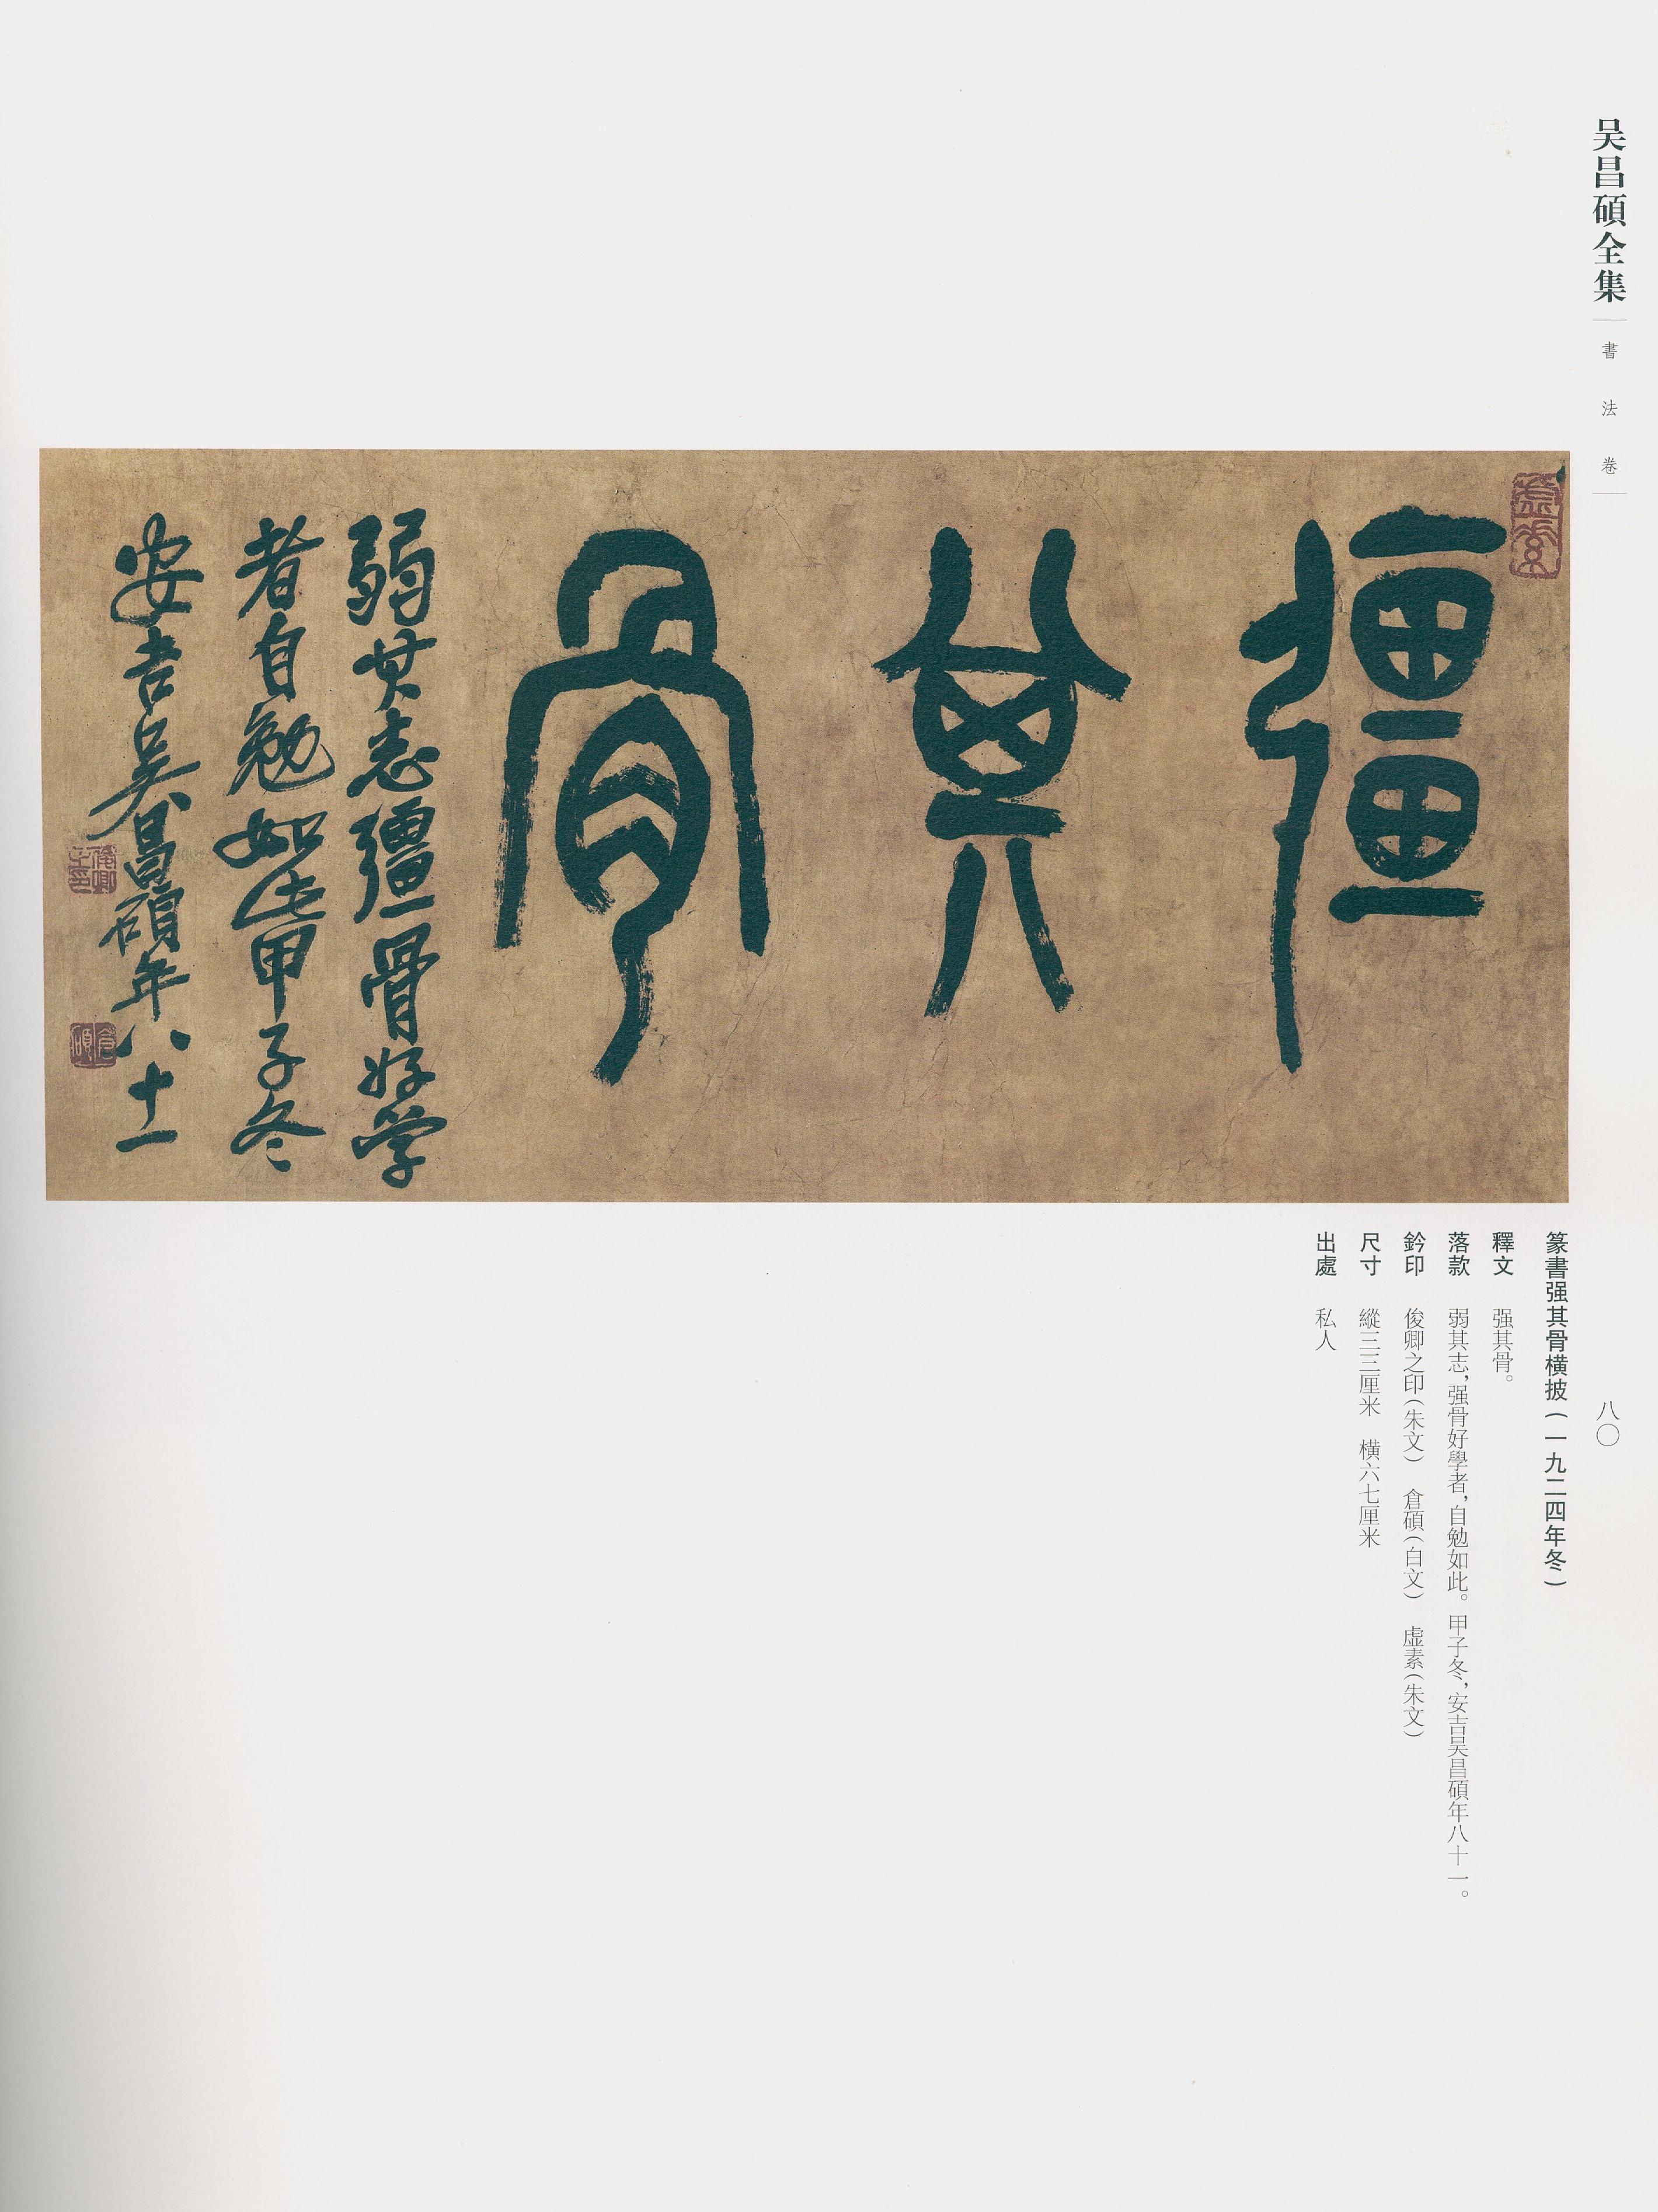 吴昌碩全集
書法卷
八〇
虚素
彊其骨
弱其志彊骨好学
者自勉如此甲子冬
安吉吴昌碩年八十一
俊卿之印
倉碩
篆書强其骨横披(一九二四年冬)
釋文 强其骨。
落款 弱其志,强骨好學者,自勉如此。甲子冬,安吉吴昌碩年八十一。
鈐印 俊卿之印(朱文) 倉碩(白文) 虚素(朱文)
尺寸 縱三三厘米 横六七厘米
出處 私人